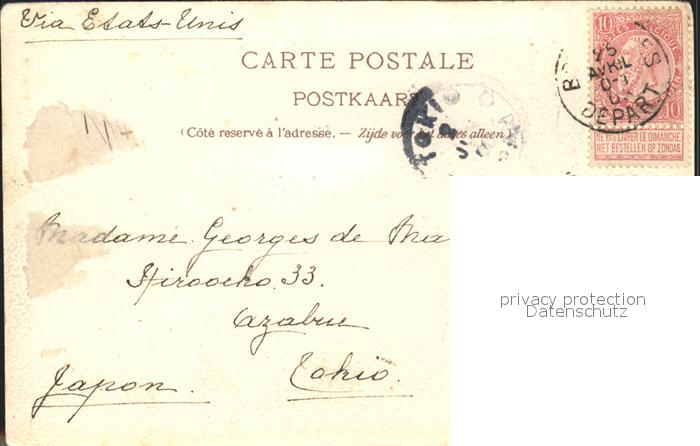 Via Etats-Unis
CARTE POSTALE
POSTKAART
(Côté reservé à l'adresse. — Zijde voor het adres alleen)
10
10
NE PAS LIVRER LE DIMANCHE
NIET BESTELLEN OP ZONDAG
25
AVRIL
DEPART
TOKIO
Madame Georges de Ma
33.
Azabu
Tokio.
Japon.
privacy protection
Datenschutz